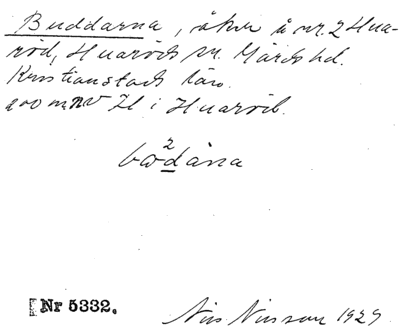 Buddarna, åker å nr. 2 Hua-
röd, Huaröds sn. Gärds hd.
Kristianstads län.
200 m NV Ll i Huaröd.
bodåna
Nr 5332.
Nils Nilsson 1929